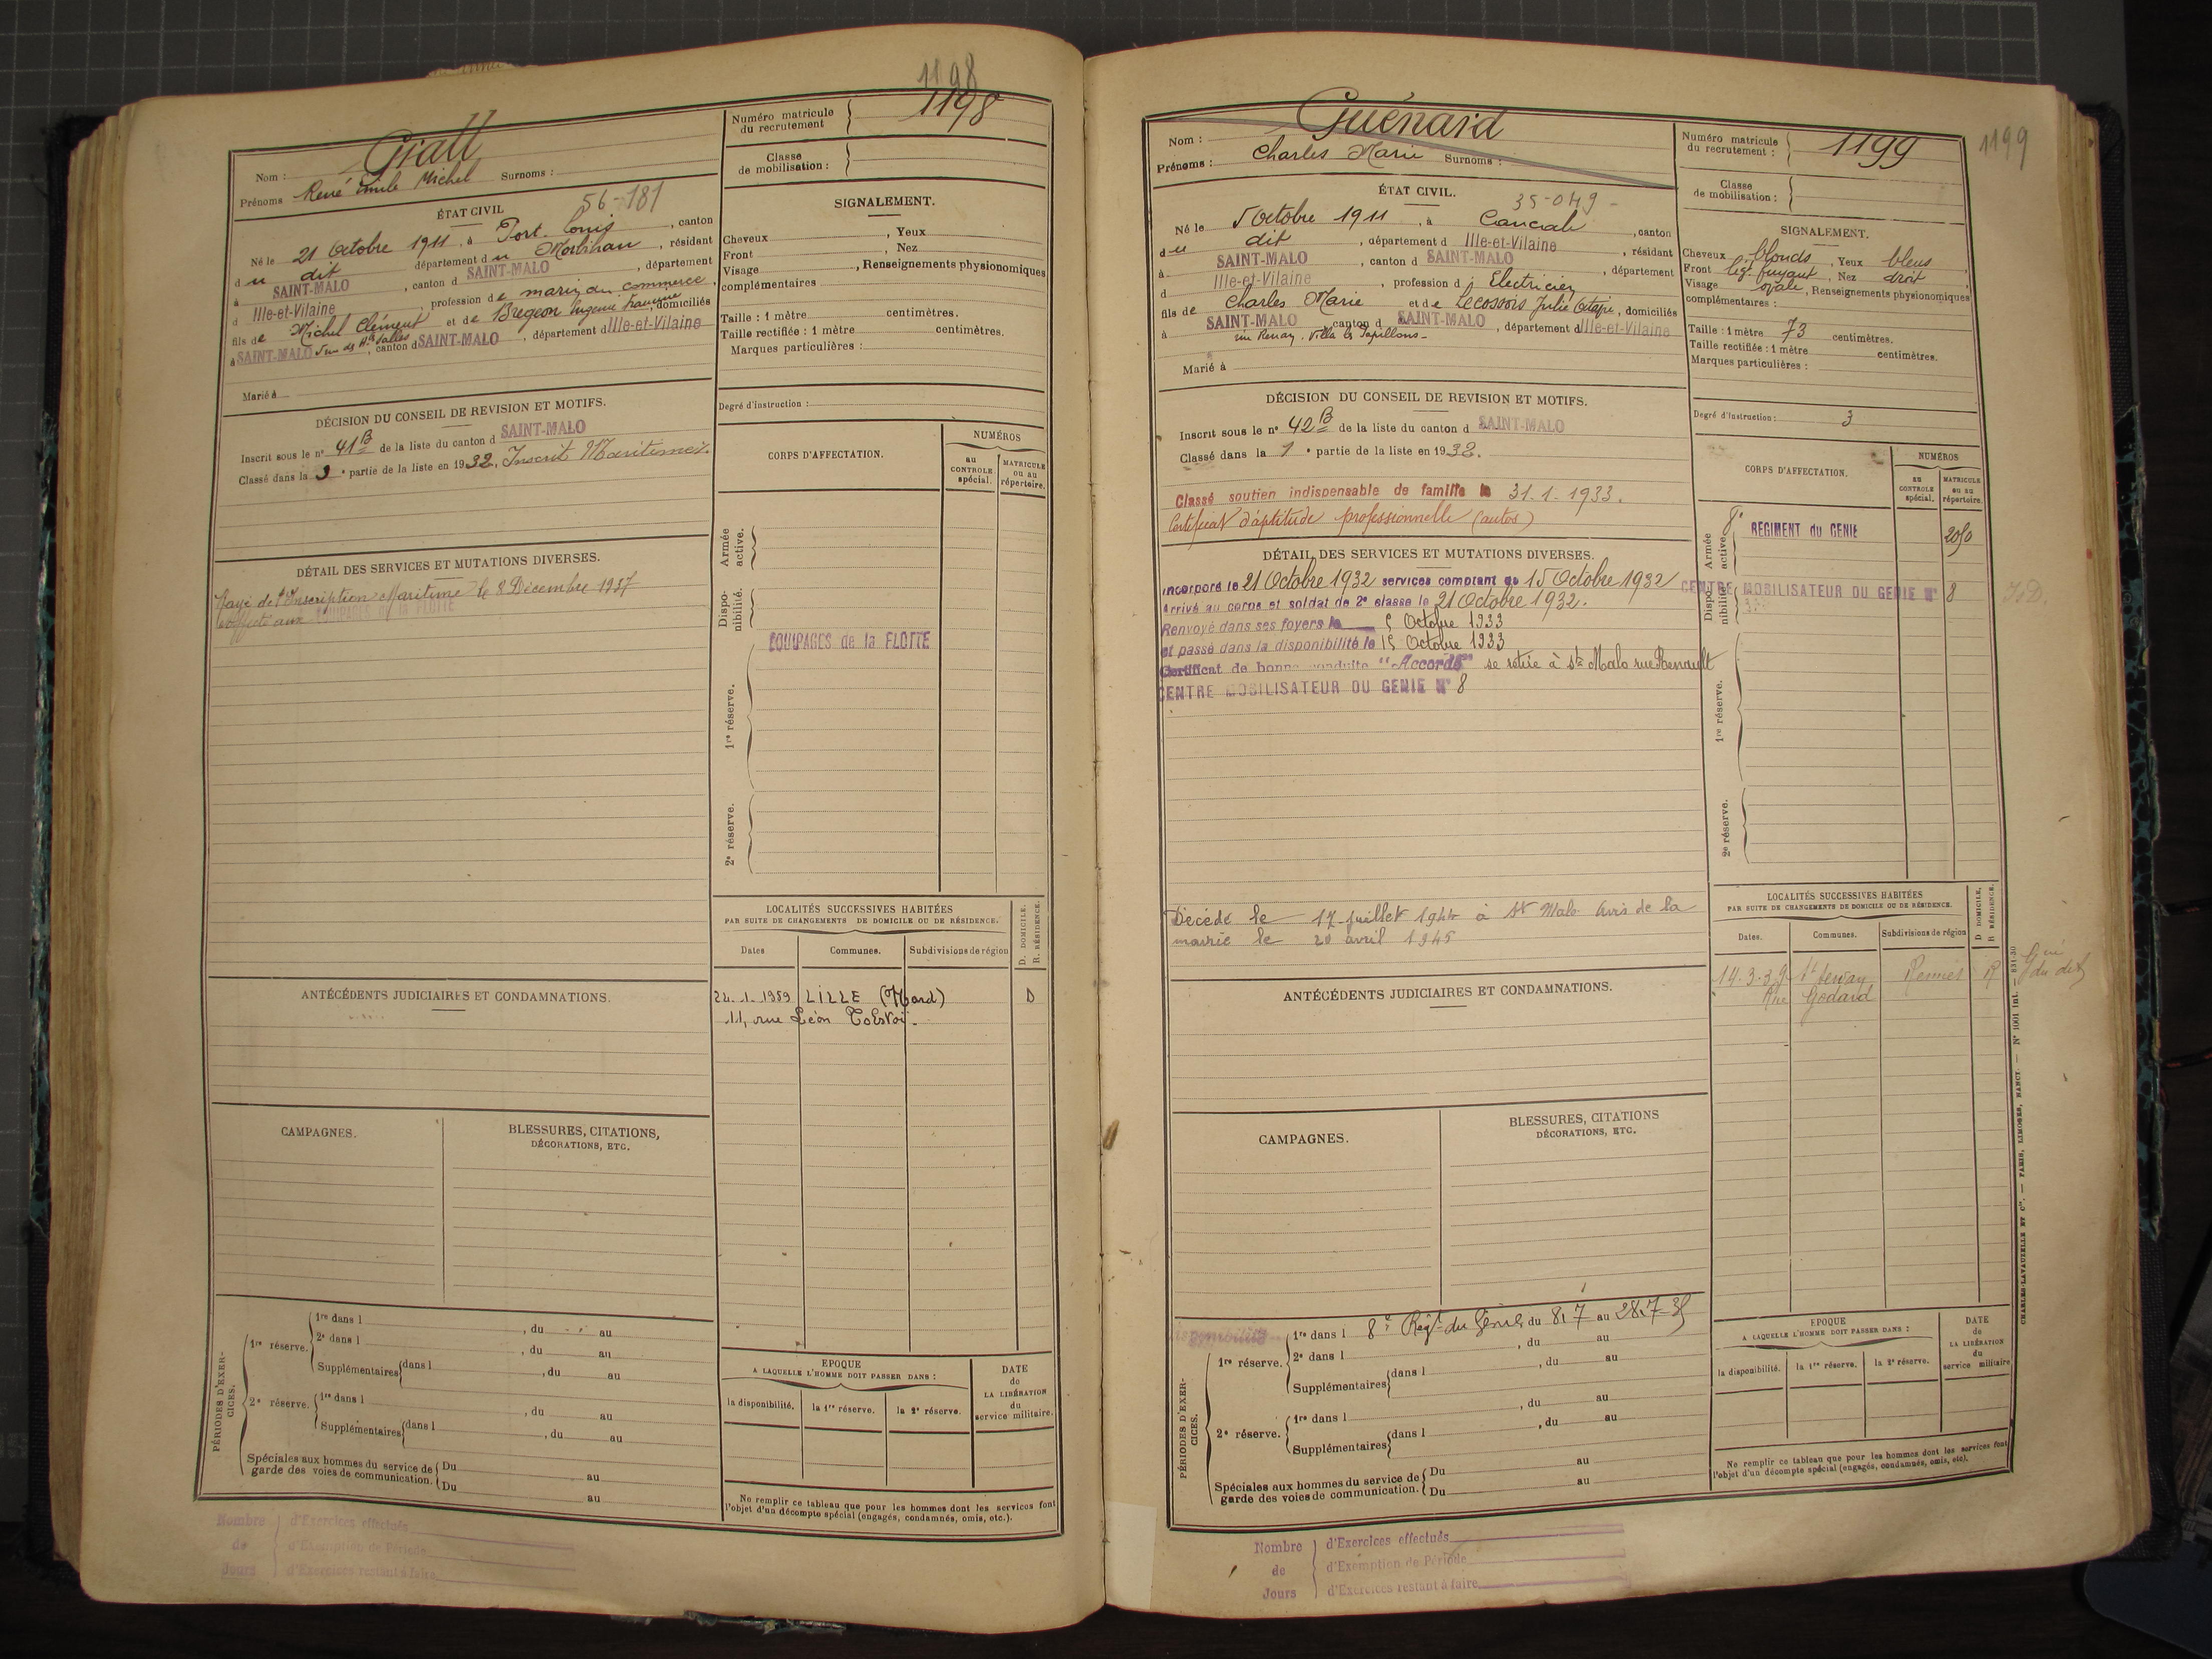 1198
Grall
Nom :
Prénoms René Emile Michel Surnoms :
Numéro matricule
du recrutement
1198
Classe
de mobilisation :
ÉTAT CIVIL
56-181
Né le 21 Octobre 1911, à Port-Louis, canton
du dit département du Morbihan, résidant
à SAINT-MALO, canton d SAINT-MALO, département
d Ille-et-Vilaine, profession de marin du commerce,
fils de Michel Clément et de Bregeon Eugénie Françoise, domiciliés
à SAINT-MALO, canton d SAINT-MALO, département d Ille-et-Vilaine
Marié à
SIGNALEMENT.
Cheveux, Yeux
Front, Nez
Visage, Renseignements physionomiques
complémentaires
Taille : 1 mètre centimètres.
Taille rectifiée : 1 mètre centimètres.
Marques particulières :
Degré d'instruction :
DÉCISION DU CONSEIL DE REVISION ET MOTIFS.
Inscrit sous le n° 41 B de la liste du canton d SAINT-MALO
Classé dans la 3e partie de la liste en 1932, Inscrit Maritime.
CORPS D'AFFECTATION.
NUMÉROS
au
CONTROLE
spécial.
MATRICULE
ou au
répertoire.
DÉTAIL DES SERVICES ET MUTATIONS DIVERSES.
Rayé de l'Inscription Maritime le 8 Décembre 1937
affecté aux EQUIPAGES de la FLOTTE
Armée
active.
Dispo-
nibilité.
EQUIPAGES de la FLOTTE
1re réserve.
2e réserve.
LOCALITÉS SUCCESSIVES HABITÉES
PAR SUITE DE CHANGEMENTS DE DOMICILE OU DE RÉSIDENCE.
D. DOMICILE.
R. RÉSIDENCE.
Dates
Communes.
Subdivisions de région
24.1.1959 LILLE (Nord) D
11, rue Léon Tolstoï.
ANTÉCÉDENTS JUDICIAIRES ET CONDAMNATIONS.
CAMPAGNES.
BLESSURES, CITATIONS,
DÉCORATIONS, ETC.
PÉRIODES D'EXER-
CICES.
1re réserve.
1re dans l, du au
2e dans l, du au
Supplémentaires dans l, du au
2e réserve.
1re dans l, du au
Supplémentaires dans l, du au
Spéciales aux hommes du service de
garde des voies de communication.
Du au
Du au
EPOQUE
A LAQUELLE L'HOMME DOIT PASSER DANS :
la disponibilité.
la 1re réserve.
la 2e réserve.
DATE
de
LA LIBÉRATION
du
service militaire.
Ne remplir ce tableau que pour les hommes dont les services font
l'objet d'un décompte spécial (engagés, condamnés, omis, etc.).
Nombre
de
Jours
d'Exercices effectués
d'Exemption de Période
d'Exercices restant à faire
Nom : Guénard
Prénoms : Charles Marie Surnoms :
Numéro matricule
du recrutement :
1199
1199
Classe
de mobilisation :
ÉTAT CIVIL.
35-049-
Né le 5 Octobre 1911, à Cancale, canton
du dit, département d Ille-et-Vilaine, résidant
à SAINT-MALO, canton d SAINT-MALO, département
d Ille-et-Vilaine, profession d Electricien
fils de Charles Marie et de Lecossois Julie, domiciliés
à SAINT-MALO canton d SAINT-MALO, département d Ille-et-Vilaine
Villa les Papillons-
Marié à
SIGNALEMENT.
Cheveux blonds, Yeux bleus
Front lég. fuyant, Nez droit
Visage ovale, Renseignements physionomiques
complémentaires :
Taille : 1 mètre 73 centimètres.
Taille rectifiée : 1 mètre centimètres.
Marques particulières :
Degré d'instruction : 3
DÉCISION DU CONSEIL DE REVISION ET MOTIFS.
Inscrit sous le n° 42 B de la liste du canton d SAINT-MALO
Classé dans la 1e partie de la liste en 1932.
Classé soutien indispensable de famille le 31.1.1933.
Certificat d'aptitude professionnelle (autos)
CORPS D'AFFECTATION.
NUMÉROS
au
CONTROLE
spécial.
MATRICULE
ou au
répertoire.
Armée
active.
8e REGIMENT du GENIE
DÉTAIL DES SERVICES ET MUTATIONS DIVERSES.
Incorporé le 21 Octobre 1932 services comptant du 15 Octobre 1932
Arrivé au corps et soldat de 2e classe le 21 Octobre 1932.
Renvoyé dans ses foyers le 5 Octobre 1933
et passé dans la disponibilité le 15 Octobre 1933
Certificat de bonne conduite "Accordé" se retire à St Malo rue Renault
CENTRE MOBILISATEUR DU GENIE N° 8
Dispo-
nibilité.
CENTRE MOBILISATEUR DU GENIE N° 8
1re réserve.
2e réserve.
Décédé le 17 juillet 1944 à St Malo avis de la
mairie le 20 avril 1945
LOCALITÉS SUCCESSIVES HABITÉES
PAR SUITE DE CHANGEMENTS DE DOMICILE OU DE RÉSIDENCE.
D DOMICILE.
R RÉSIDENCE.
Dates.
Communes.
Subdivisions de région
14.3.39 St Servan Rennes R
Rue Godard
ANTÉCÉDENTS JUDICIAIRES ET CONDAMNATIONS.
CAMPAGNES.
BLESSURES, CITATIONS
DÉCORATIONS, ETC.
PÉRIODES D'EXER-
CICES.
1re réserve.
1re dans l 8e Régt du Génie du 8.7 au 28.7-35
2e dans l, du au
Supplémentaires dans l, du au
2e réserve.
1re dans l, du au
Supplémentaires dans l, du au
Spéciales aux hommes du service de
garde des voies de communication.
Du au
Du au
EPOQUE
A LAQUELLE L'HOMME DOIT PASSER DANS :
la disponibilité.
la 1re réserve.
la 2e réserve.
DATE
de
LA LIBÉRATION
du
service militaire
Ne remplir ce tableau que pour les hommes dont les services font
l'objet d'un décompte spécial (engagés, condamnés, omis, etc).
CHARLES-LAVAUZELLE ET Cie. — PARIS, LIMOGES, NANCY. — N° 1001 int. — 831-30
Nombre
de
Jours
d'Exercices effectués
d'Exemption de Période
d'Exercices restant à faire